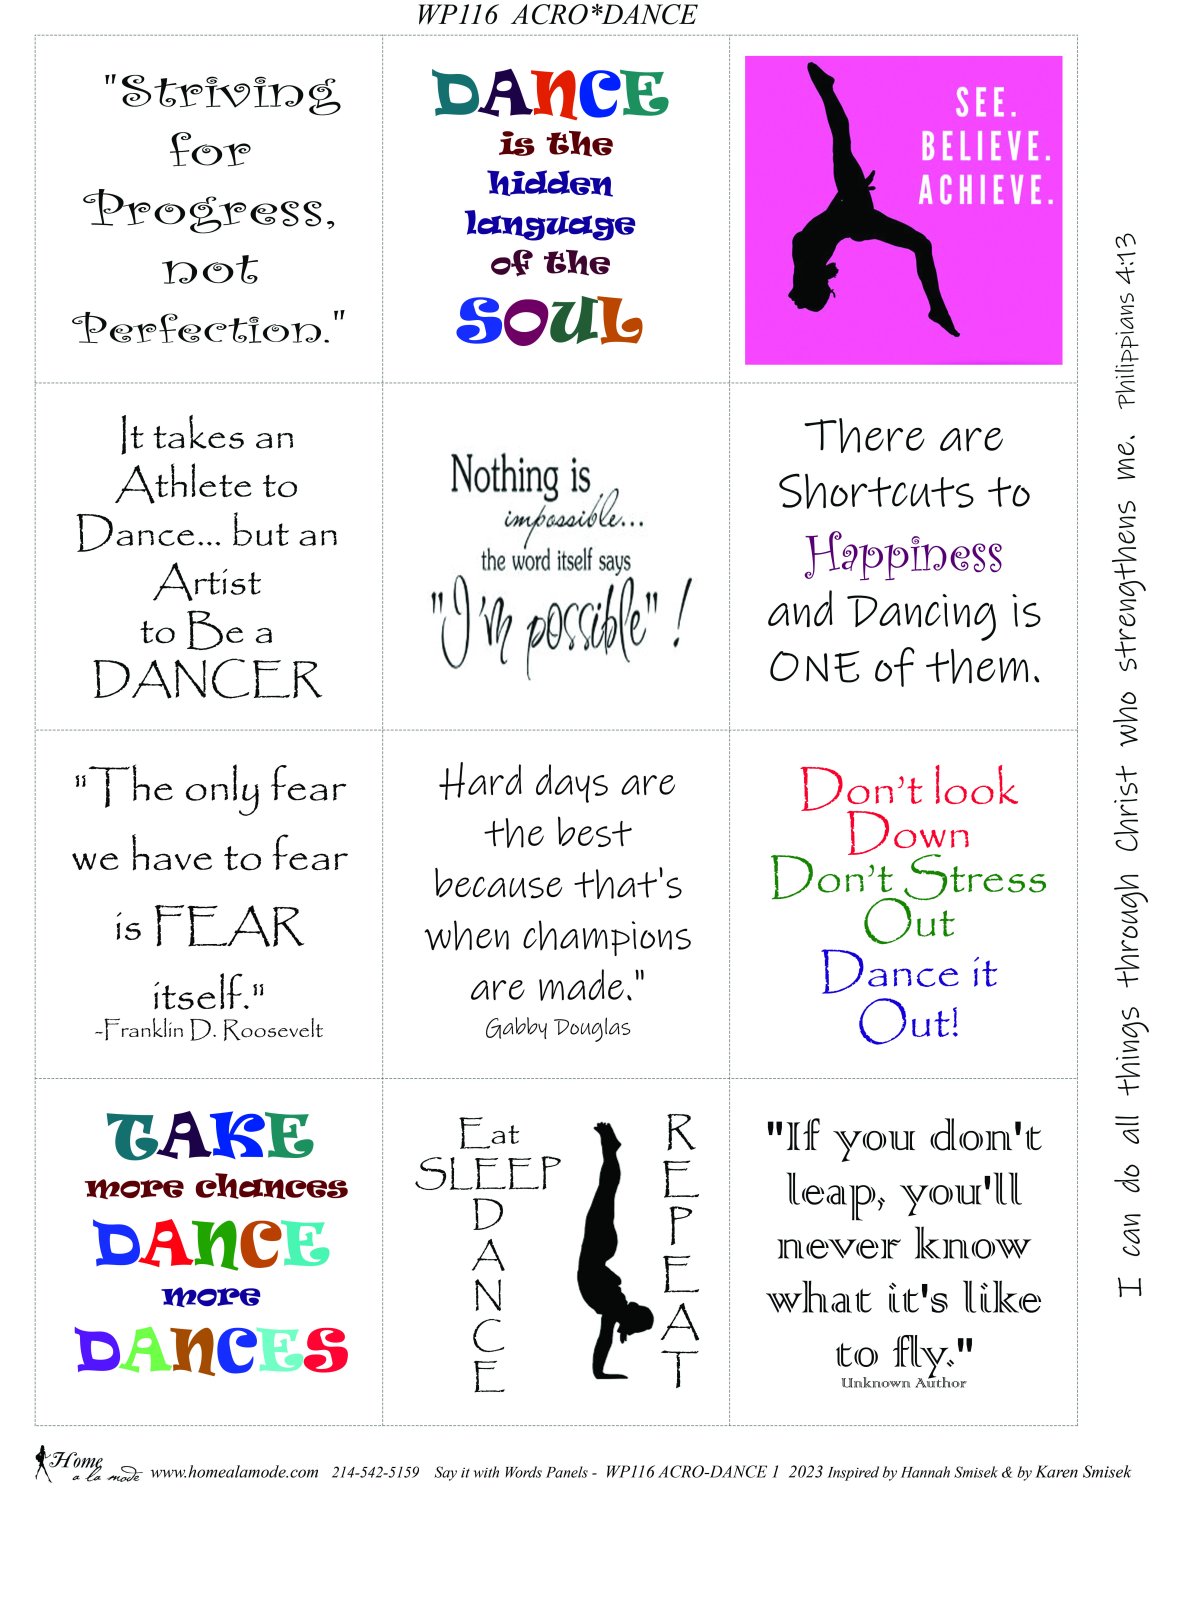 WP116 ACRO*DANCE
"Striving
for
Progress,
not
Perfection."
DANCE
is the
hidden
language
of the
SOUL
SEE.
BELIEVE.
ACHIEVE.
It takes an
Athlete to
Dance... but an
Artist
to Be a
DANCER
Nothing is
impossible...
the word itself says
"I'm possible" !
There are
Shortcuts to
Happiness
and Dancing is
ONE of them.
"The only fear
we have to fear
is FEAR
itself."
-Franklin D. Roosevelt
Hard days are
the best
because that's
when champions
are made."
Gabby Douglas
Don't look
Down
Don't Stress
Out
Dance it
Out!
TAKE
more chances
DANCE
more
DANCES
Eat
SLEEP
DANCE
REPEAT
"If you don't
leap, you'll
never know
what it's like
to fly."
Unknown Author
I can do all things through Christ who strengthens me. Philippians 4:13
Home
a la mode
www.homealamode.com 214-542-5159 Say it with Words Panels - WP116 ACRO-DANCE 1 2023 Inspired by Hannah Smisek & by Karen Smisek